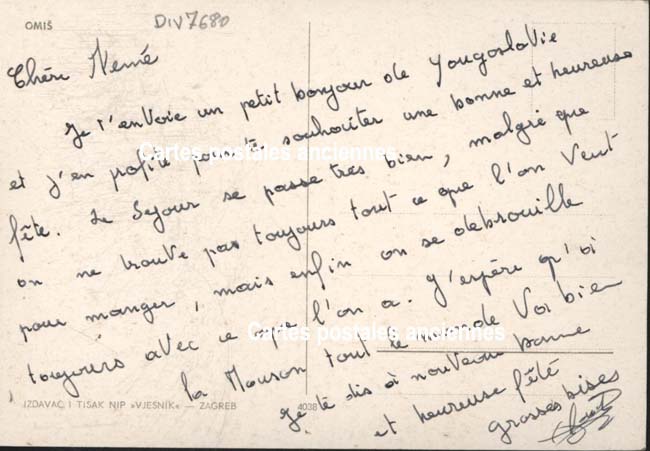 OMIŠ
DIV7680
Chéri Mémé
Je t'envoie un petit bonjour de Yougoslavie
et j'en profite pour te souhaiter une bonne et heureuse
Cartes postales anciennes
fête. Le Sejour se passe très bien, malgré que
on ne trouve pas toujours tout ce que l'on veut
pour manger, mais enfin on se debrouille
toujours avec ce que l'on a. J'espère qu'a
Cartes postales anciennes
la Maison tout le monde Va bien
Je te dis à nouveau bonne
et heureuse fêté
grosses bises
IZDAVAČ I TISAK NIP »VJESNIK« — ZAGREB
4038